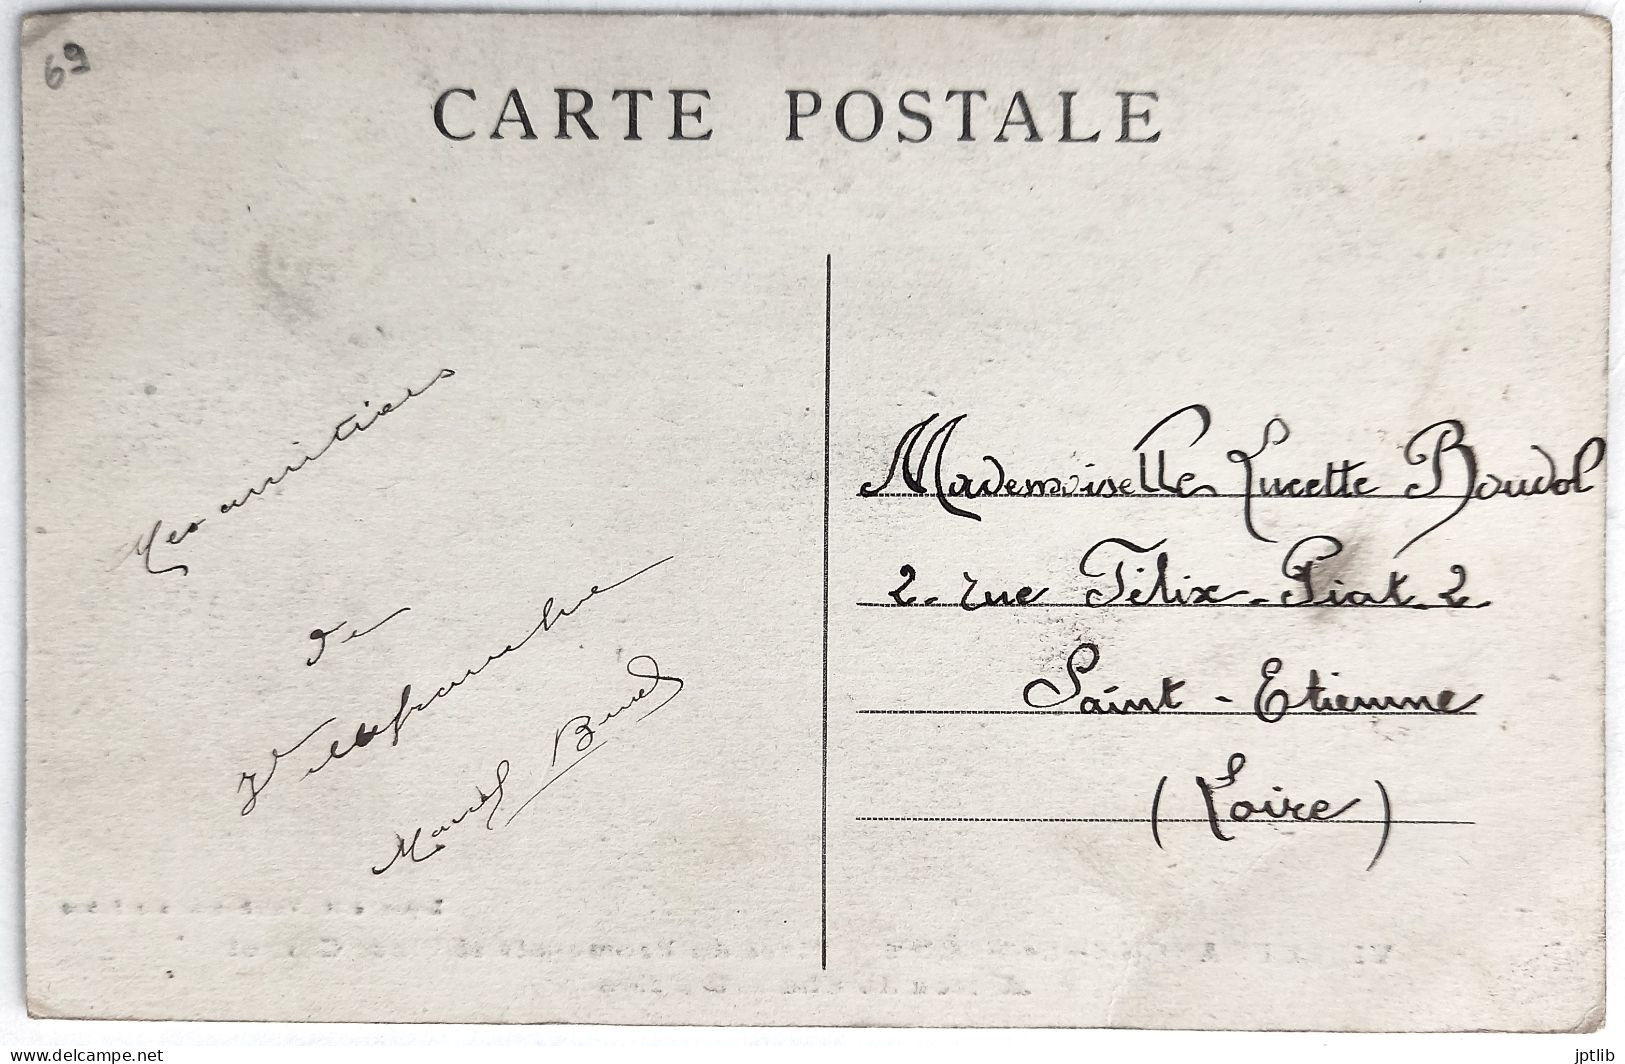 69
CARTE POSTALE
Mes amitiés
de
Villefranche
Marcel
Mademoiselle Lucette Boudol
2 - rue Félix - Piat - 2
Saint - Etienne
(Loire)
www.delcampe.net
jptlib